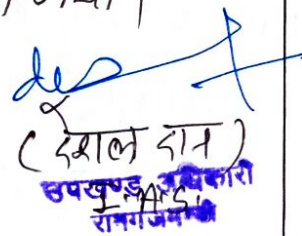 (देशल दान)
उपखण्ड अधिकारी
I.A.S.
रामगंजमण्डी